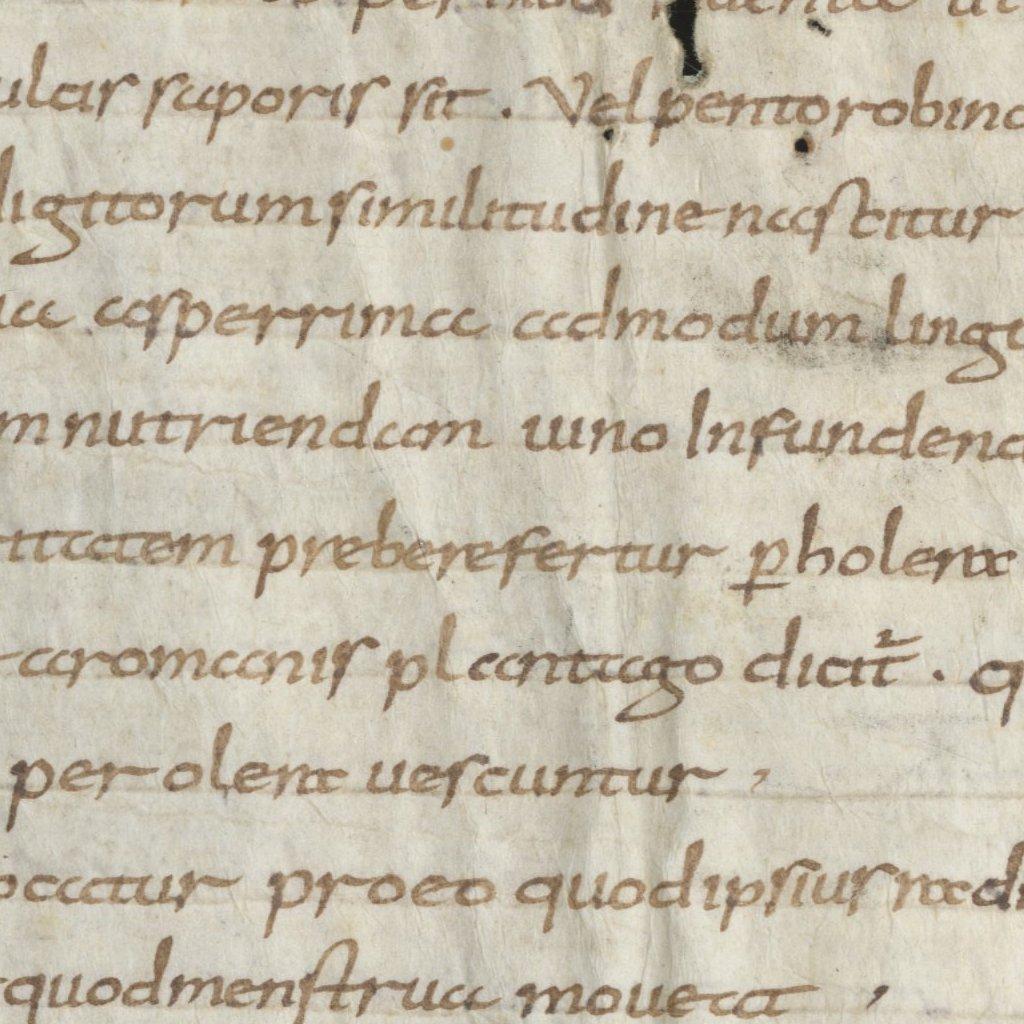 saporis sit . Vel pentorobina
digitorum similitudine nascitur
asperrima admodum lingu
m nutriendam uino Infundend
itatem prebere fertur p̱ holera
a romanis plantago dicit̃ . q
per olera uescuntur ,
ocatur pro eo quod ipsius radi
quod menstrua moueat ,